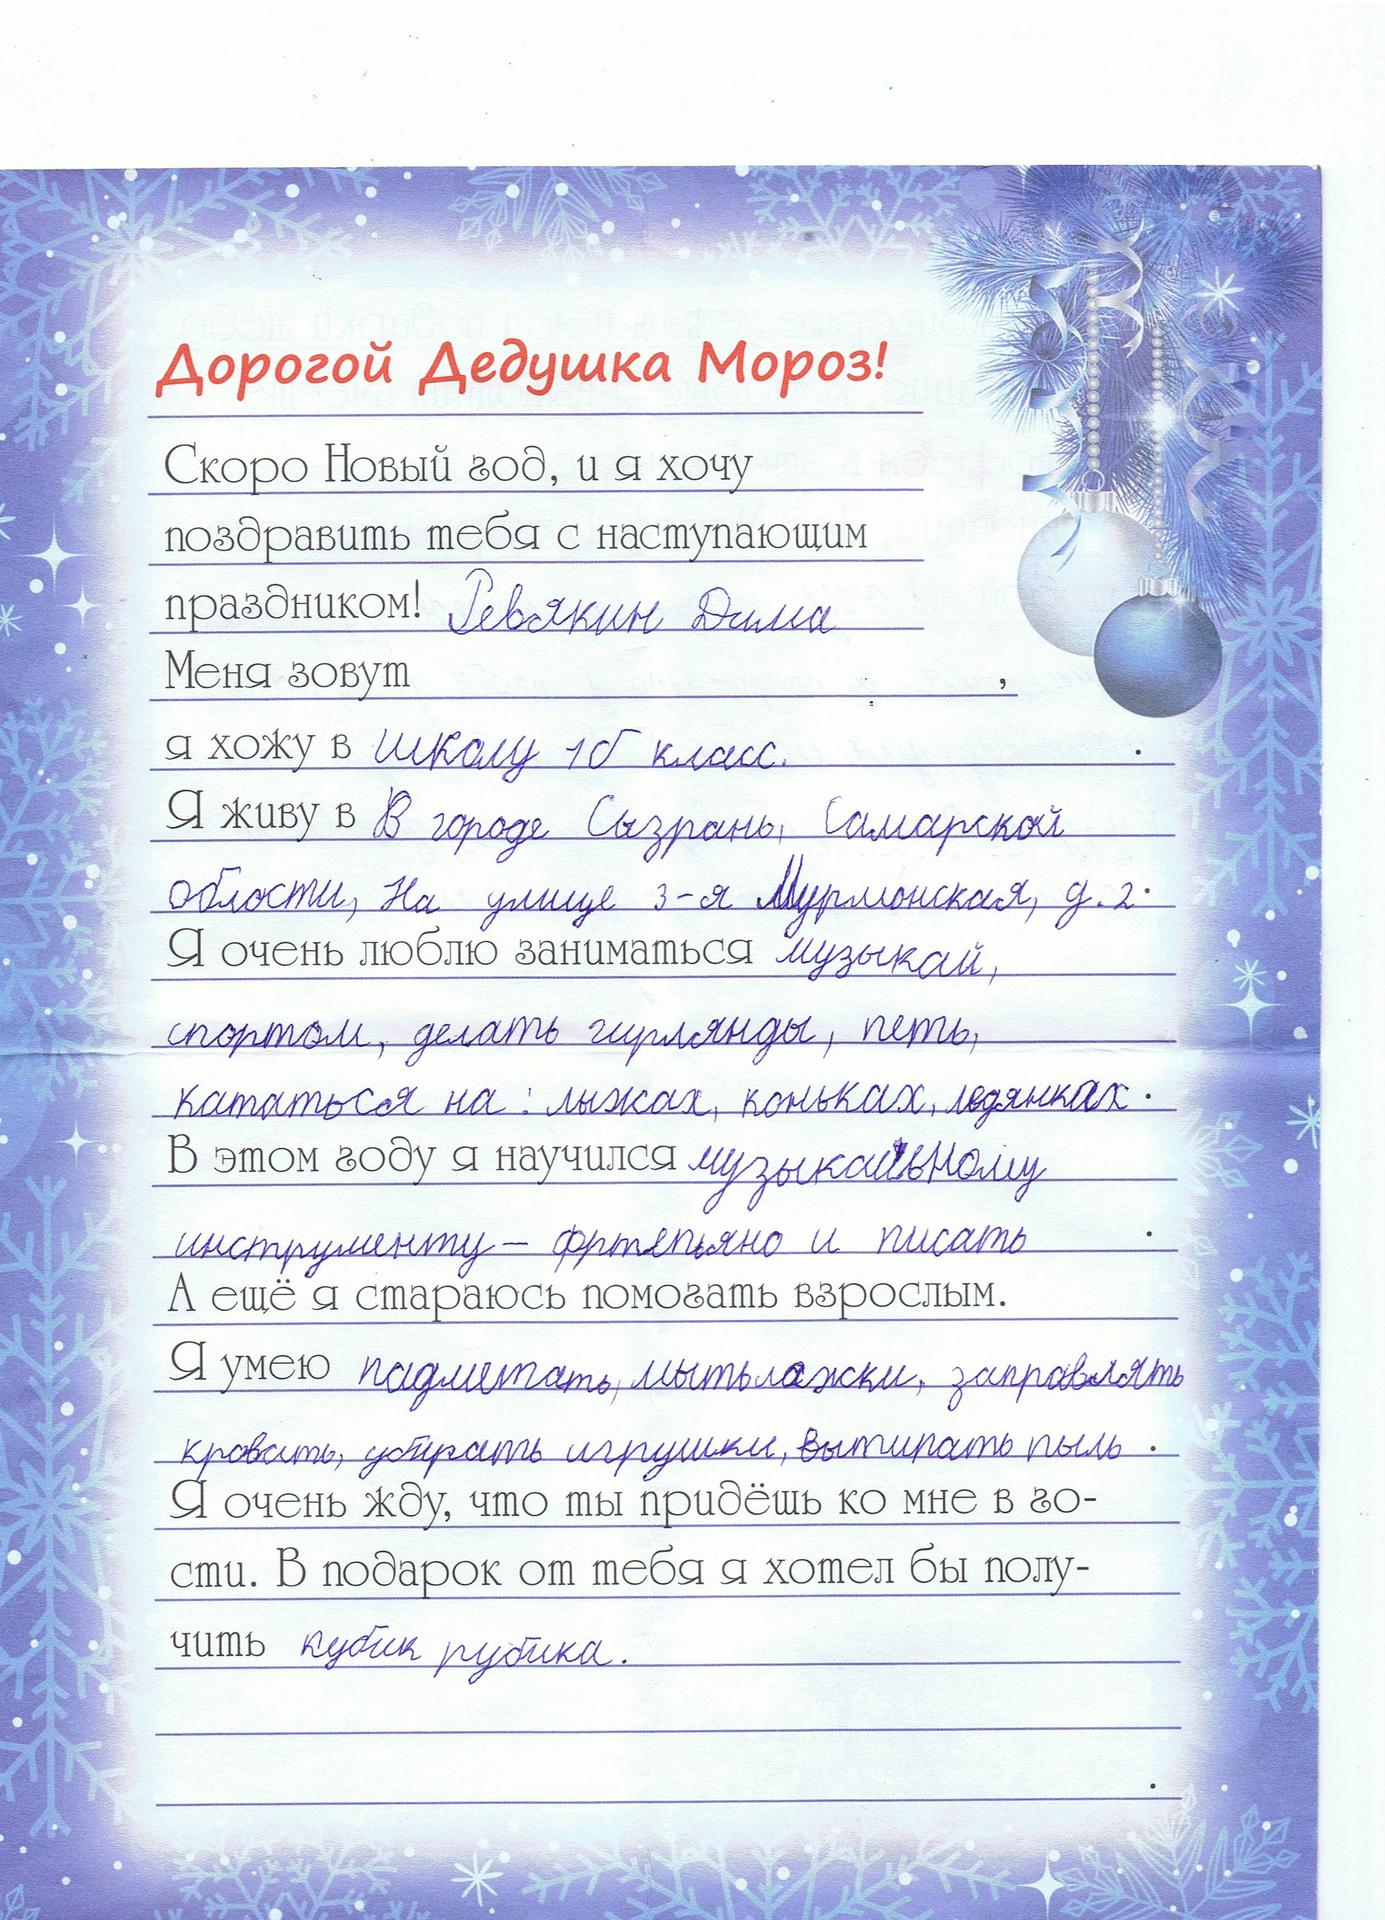 Дорогой Дедушка Мороз!
Скоро Новый год, и я хочу
поздравить тебя с наступающим
праздником! Ревякин Дима
Меня зовут ,
я хожу в школу 1б класс. .
Я живу в В городе Сызрань, Самарской
области, На улице 3-я Мурмонская, д. 2.
Я очень люблю заниматься музыкай,
спортом, делать гирлянды, петь,
кататься на: лыжах, коньках, ледянках.
В этом году я научился музыкальному
инструменту – фртепьяно и писать .
А ещё я стараюсь помогать взрослым.
Я умею падметать, мыть лажки, заправлять
кровать, убирать игрушки, вытирать пыль.
Я очень жду, что ты придёшь ко мне в го-
сти. В подарок от тебя я хотел бы полу-
чить кубик рубика.
.